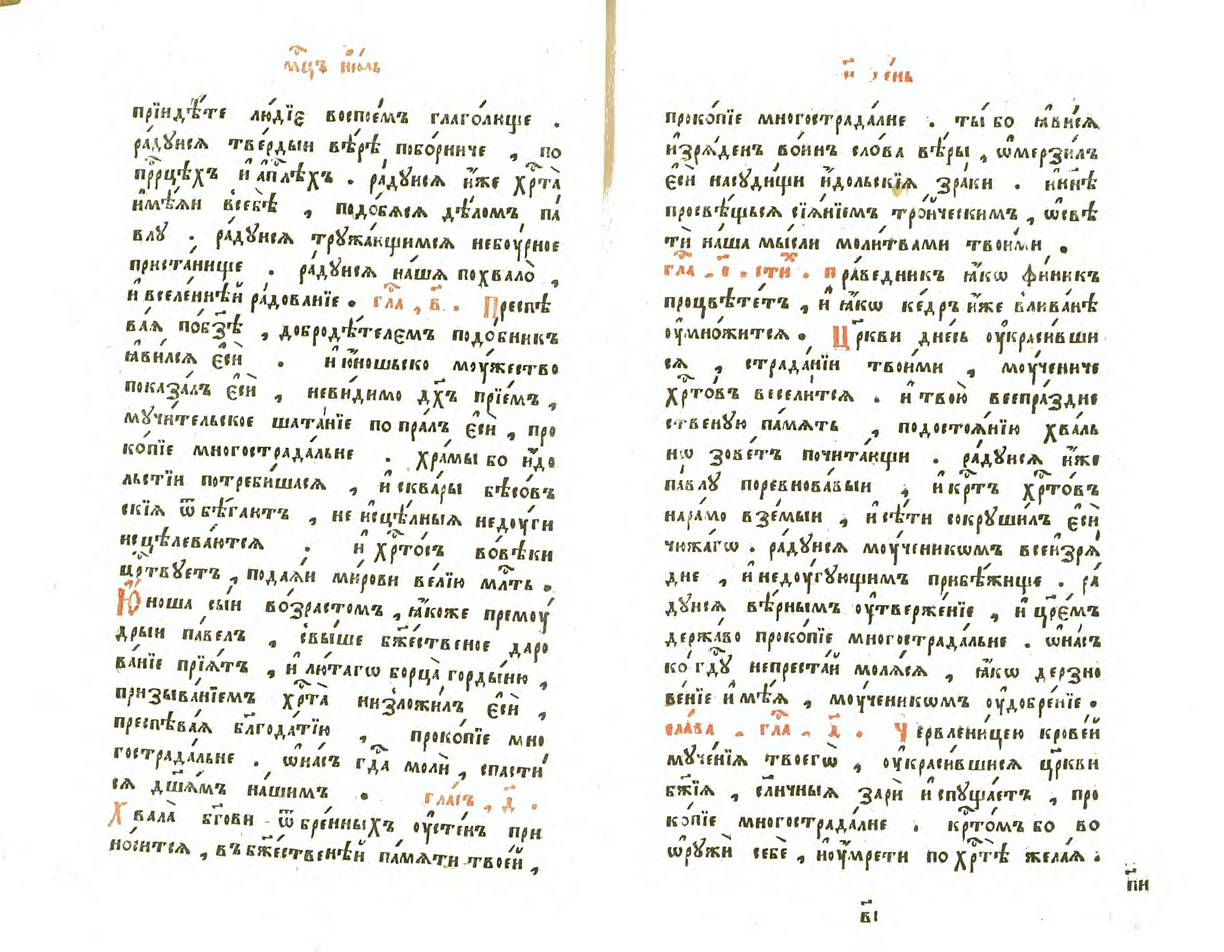 мⷭ҇цъ ию́ль
прїидѣ́те лю́дїє воспое́мъ глаго́люще .
ра́дꙋисѧ тве́рдыи вѣ́рѣ побо́рниче , по
прⷪ҇рцѣхъ и҆ а҆пⷭ҇лѣхъ . ра́дꙋисѧ и҆́же хрⷭ҇та̀
и҆мѣ́ѧи всебѣ̀ , подо́бѧсѧ дѣ́ломъ па́
влꙋ . ра́дꙋисѧ трꙋжа́ющимсѧ небоу́рное
приста́нище . ра́дꙋисѧ на́шѧ похвало̀ ,
и҆ вселе́ннѣй ра́дованїе . гла́ , в҃ . Преспѣ
ва́ѧ по́бз҃ѣ , добродѣ́телемъ подо́бникъ
ꙗ҆ви́лсѧ є҆сѝ . и҆ ю҆́ношьско моу́жество
показа́лъ є҆сѝ , неви́димо дх҃ъ прїе́мъ ,
мꙋчи́тельское шата́нїе по пра́лъ є҆сѝ , про
ко́пїе многострада́льне . хра́мы бо и҆до
льстїи потреби́шасѧ , и҆ сква́ры бѣсо́въ
скїѧ ѿ бѣ́гаютъ , не и҆сцѣ́лныѧ недоу́ги
исцѣлева́ютсѧ . и҆ хрⷭ҇то́съ во́вѣки
црⷭ҇твꙋетъ , пода́ѧи ми́рови ве́лїю млⷭ҇ть .
Ю҆́ноша сы́и во́зрастомъ , ꙗ҆́коже премоу́
дрыи па́велъ , свы́ше бж҃е́ственое даро
ва́нїе прїѧ́тъ , и҆ лю́тагѡ борца̀ горды́ню ,
призыва́нїемъ хрⷭ҇та̀ низложи́лъ є҆сѝ ,
преспѣва́ѧ бл҃года́тїю , проко́пїе мно
гострада́льне . ѡ҆на́съ гдⷭ҇а молѝ , спасти
сѧ дш҃а́мъ на́шимъ . гла́съ , д҃ .
Хвала̀ бг҃ови ѿ бре́нныхъ оу҆сте́нъ при
но́ситсѧ , въ бж҃е́ственѣй па́мѧти твое́й ,
и҃ де́нь
проко́пїе многострада́лне . ты́ бо ꙗ҆ви́сѧ
и҆зрѧ́денъ во́инъ сло́ва вѣ́ры , ѡ҆мерзи́лъ
є҆сѝ насꙋди́щи и҆́дольскїѧ зра́ки . ини҃ѣ
просвѣ́щьсѧ сїѧ́нїемъ тро́йческимъ , ѡ҆свѣ
тѝ на́ша мы́сли моли́твами твои́ми .
гла́ . е҃ . сти́х . праведникъ ꙗ҆́кѡ фи́никъ
процвѣте́тъ , и҆ ꙗ҆́кѡ ке́дръ и҆́же влива́нѣ
оу҆мно́житсѧ . Цр҃кви дне́сь оу҆кра́сивши
сѧ , страда́нїи твои́ми , моу́чениче
хрⷭ҇то́въ весели́тсѧ . и҆ твою̀ всепра́здне
ственꙋю па́мѧть , подостоѧ́нїю хва́ль
нѡ зове́тъ почита́ющи . ра́дꙋисѧ и҆́же
па́влꙋ поревнова́выи , и҆ крⷭ҇тъ хрⷭ҇то́въ
нара́мо взе́мыи , и҆ сѣ́ти сокрꙋши́лъ є҆сѝ
чю́жагѡ . ра́дꙋисѧ моу́ченикѡмъ всеизрѧ́
дне , и҆ недоу́гꙋющимъ прибѣ́жище . ра́
дꙋисѧ вѣ́рнымъ оу҆твержє́нїе , и҆ цр҃е́мъ
держа́во проко́пїе многострада́льне . ѡ҆на́съ
ко́ гдⷭ҇ꙋ непреста́й молѧ́сѧ , ꙗ҆́кѡ дерзно
ве́нїе и҆мѣ́ѧ , моу́ченикѡмъ оу҆добре́нїе .
сла́ва . гла́ . д҃ . Червлени́цею крове́й
мꙋче́нїѧ твоегѡ̀ , оу҆кра́сившисѧ цр҃кви
бж҃їѧ , сл҃ичныѧ зарѝ и҆спꙋща́етъ , про
ко́пїе многострада́лне . крⷭ҇то́мъ бо во
ѡ҆рꙋжи себѐ , ноу҆мре́ти по хрⷭ҇тѣ̀ жела́ѧ .
пи҃
в҃і